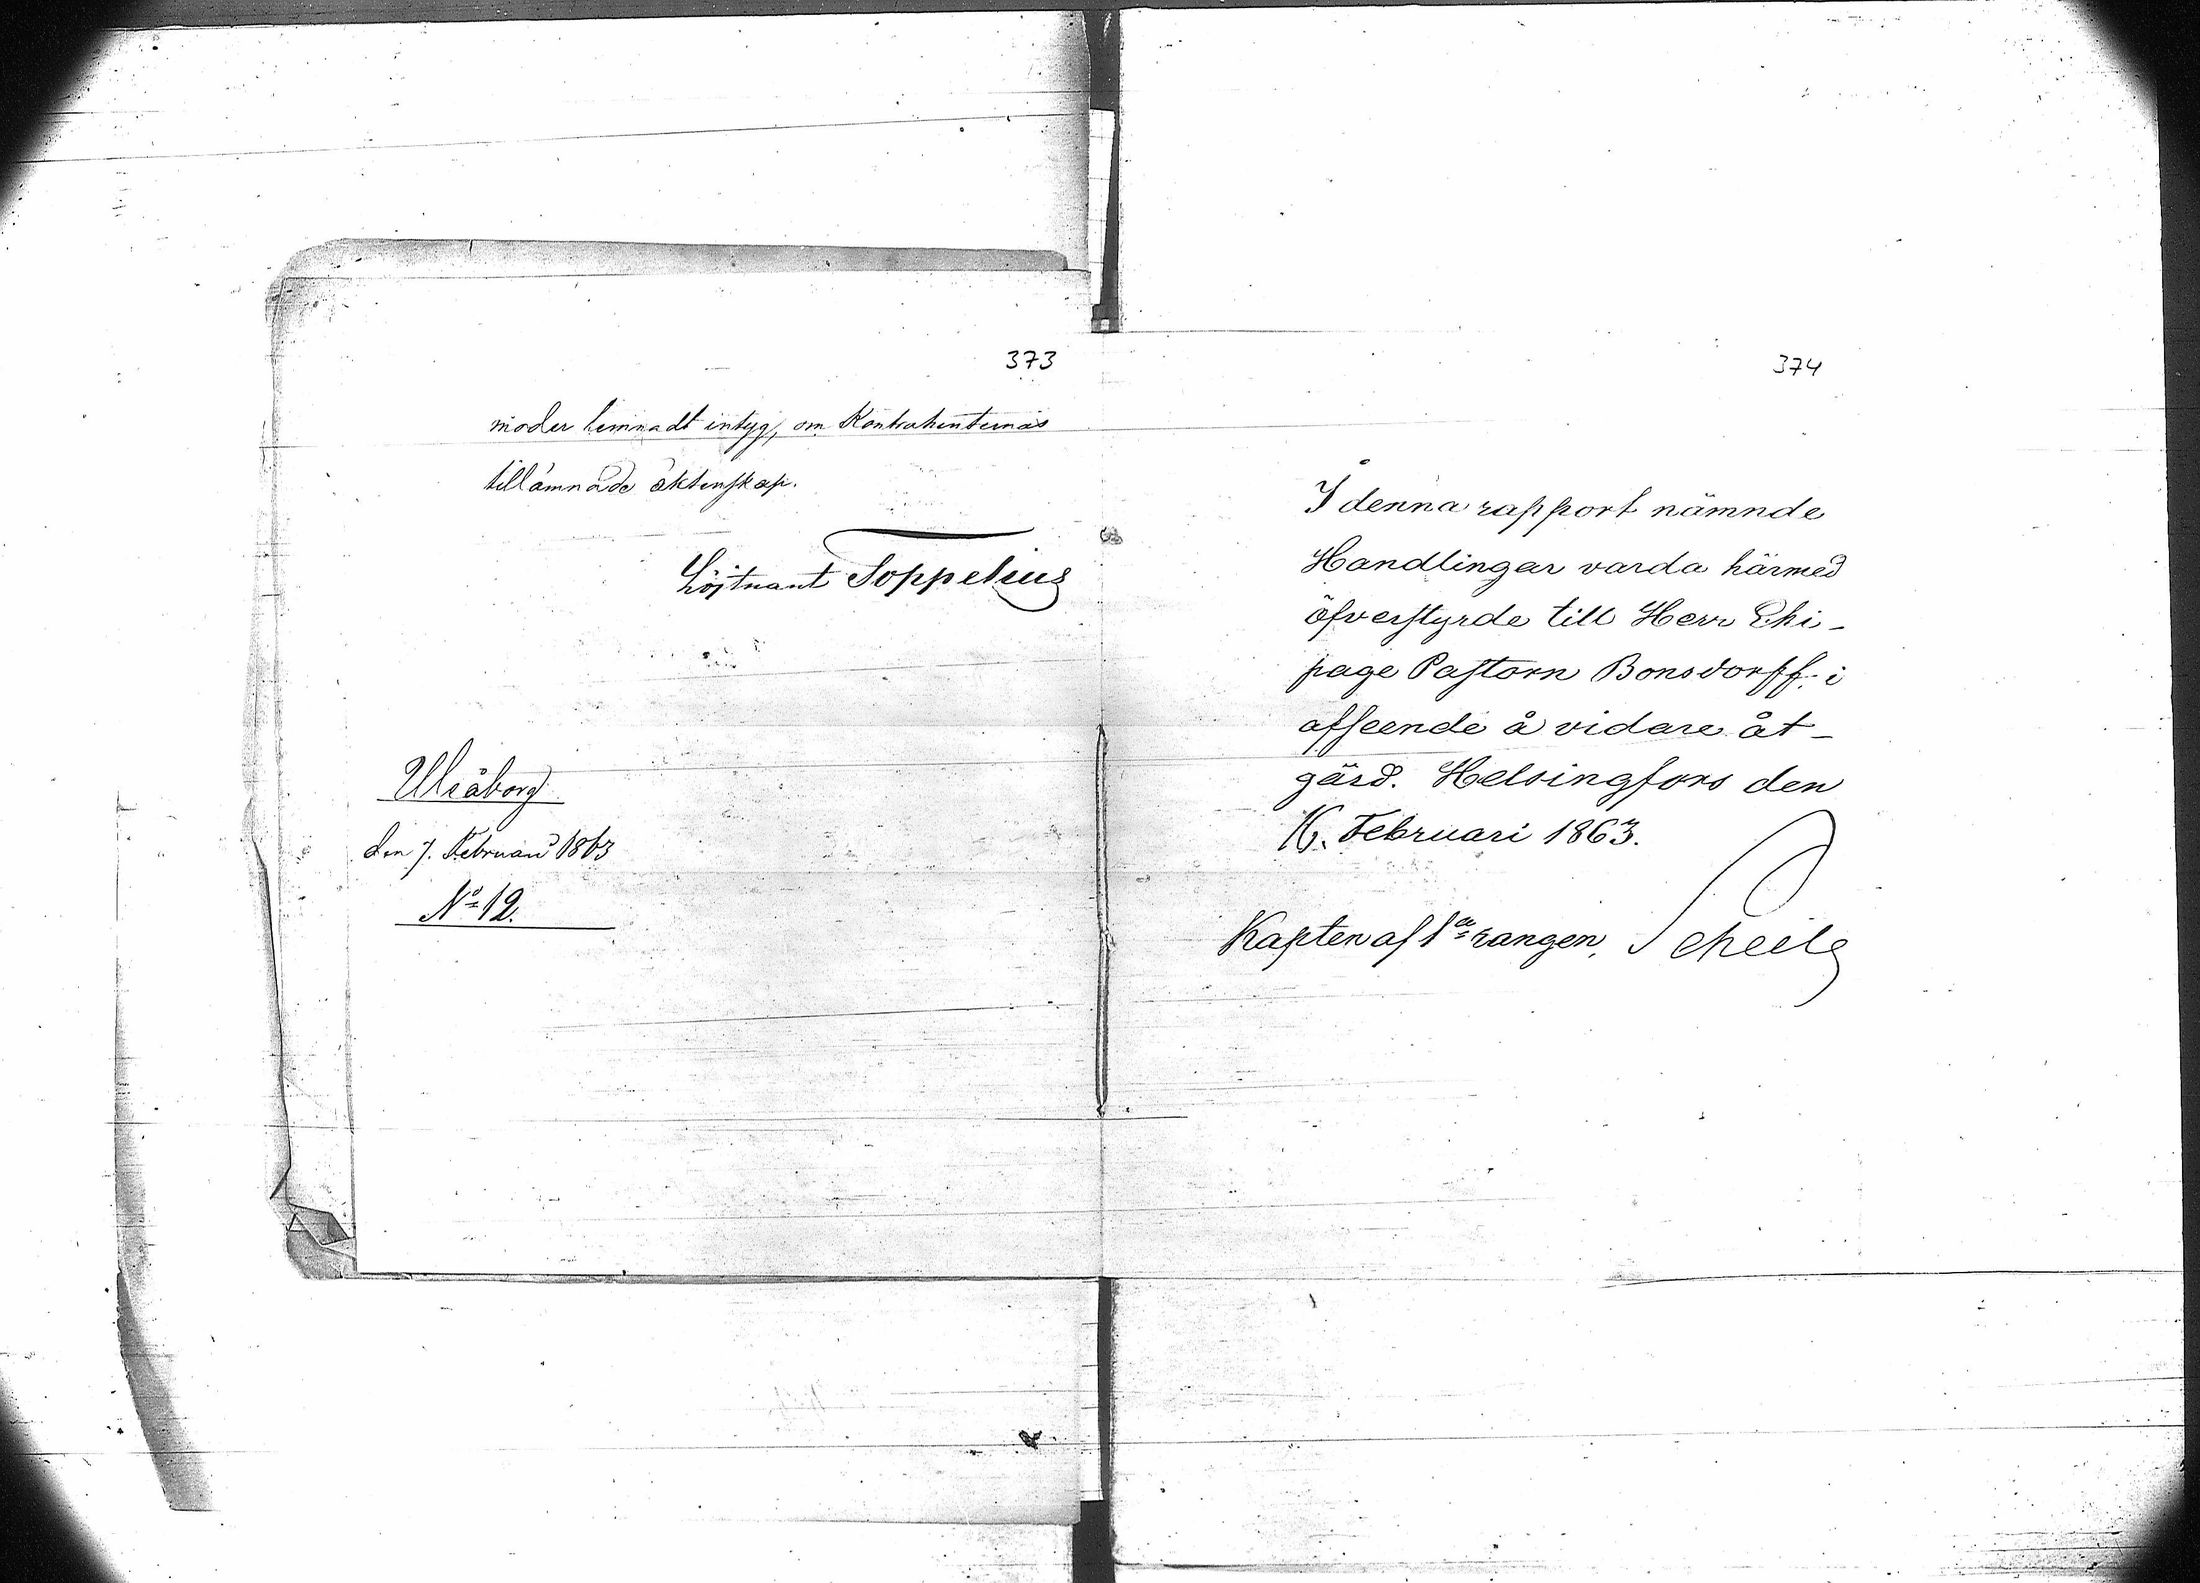 373
moder lemnadt intyg, om Kontrahenternas
tillämnade äktenskap.
Löjtnant Toppelius
Uleåborg
den 7. Februari 1863
No 12.
374
I denna rapport nämnde
Handlingar varda härmed
öfverstyrde till Herr Eki-
page Pastorn Bonsdorff i
afseende å vidare åt-
gärd. Helsingfors den
16. Februari 1863.
Kapten af 1a rangen, Scheele